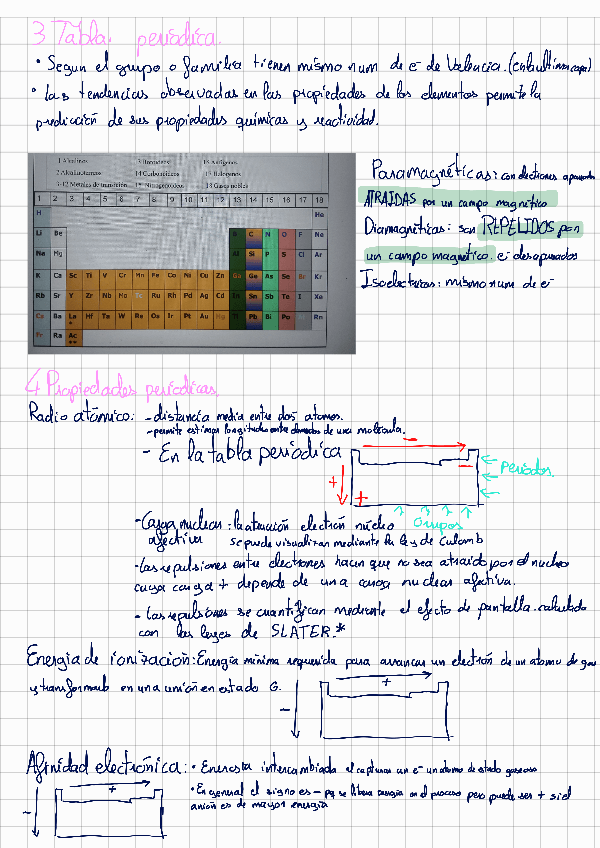 3 Tabla periódica.
• Segun el grupo o familia tienen mismo num de e⁻ de Valencia. (en la ultima capa)
• Las tendencias observadas en las propiedades de los elementos permite la
predicación de sus propiedades químicas y reactividad.
1 Alcalinos
2 Alcalinotérreos
3-12 Metales de transición
13 Boroideos
14 Carbonoideos
15 Nitrogenoideos
16 Anfígenos
17 Halógenos
18 Gases nobles
1 2 3 4 5 6 7 8 9 10 11 12 13 14 15 16 17 18
H He
Li Be B C N O F Ne
Na Mg Al Si P S Cl Ar
K Ca Sc Ti V Cr Mn Fe Co Ni Cu Zn Ga Ge As Se Br Kr
Rb Sr Y Zr Nb Mo Ru Rh Pd Ag Cd In Sn Sb Te I Xe
Cs Ba La Hf Ta W Re Os Ir Pt Au Hg Tl Pb Bi Po Rn
Fr Ra Ac
Paramagnéticas: con electrones
ATRAIDAS por un campo magnético
Diamagnéticas: son REPELIDOS por
un campo magnético. e⁻ desaparados
mismo num de e⁻
4 Propiedades periodicas.
Radio atómico: - distancia media entre dos atomos.
- permite estimar longitudes entre de una molecula.
- En la tabla periodica
-
+
+
← Periodos
Grupos
- Carga nuclear: la atracción electrón núcleo
afectiva se puede visualizar mediante la ley de Culomb
- Las repulsiones entre electrones hacen que no sea atraido por el nucleo
cuya carga + depende de una carga nuclear afectiva.
- Las repulsiones se cuantifican mediante el efecto de pantalla. calculado
con las leyes de SLATER.*
Energia de ionización: Energía mínima requerida para arrancar un electrón de un atomo de gas
y transformarlo en una unión en estado G.
+
-
Afinidad electrónica: • Energia intercambiada al capturar un e⁻ un atomo de estado gaseoso
+
-
• En general el signo es - pq se libera energia en el proceso pero puede ser + si el
anión es de mayor energia